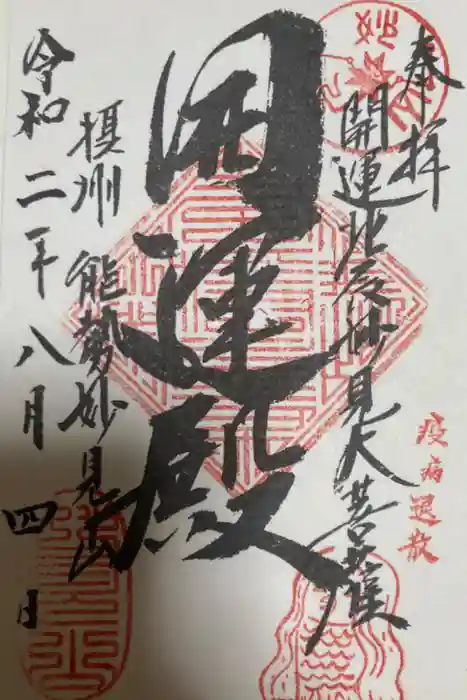 奉拝
開運北辰妙見大菩薩
疫病退散
開運殿
摂州 能勢妙見山
令和二年八月四日